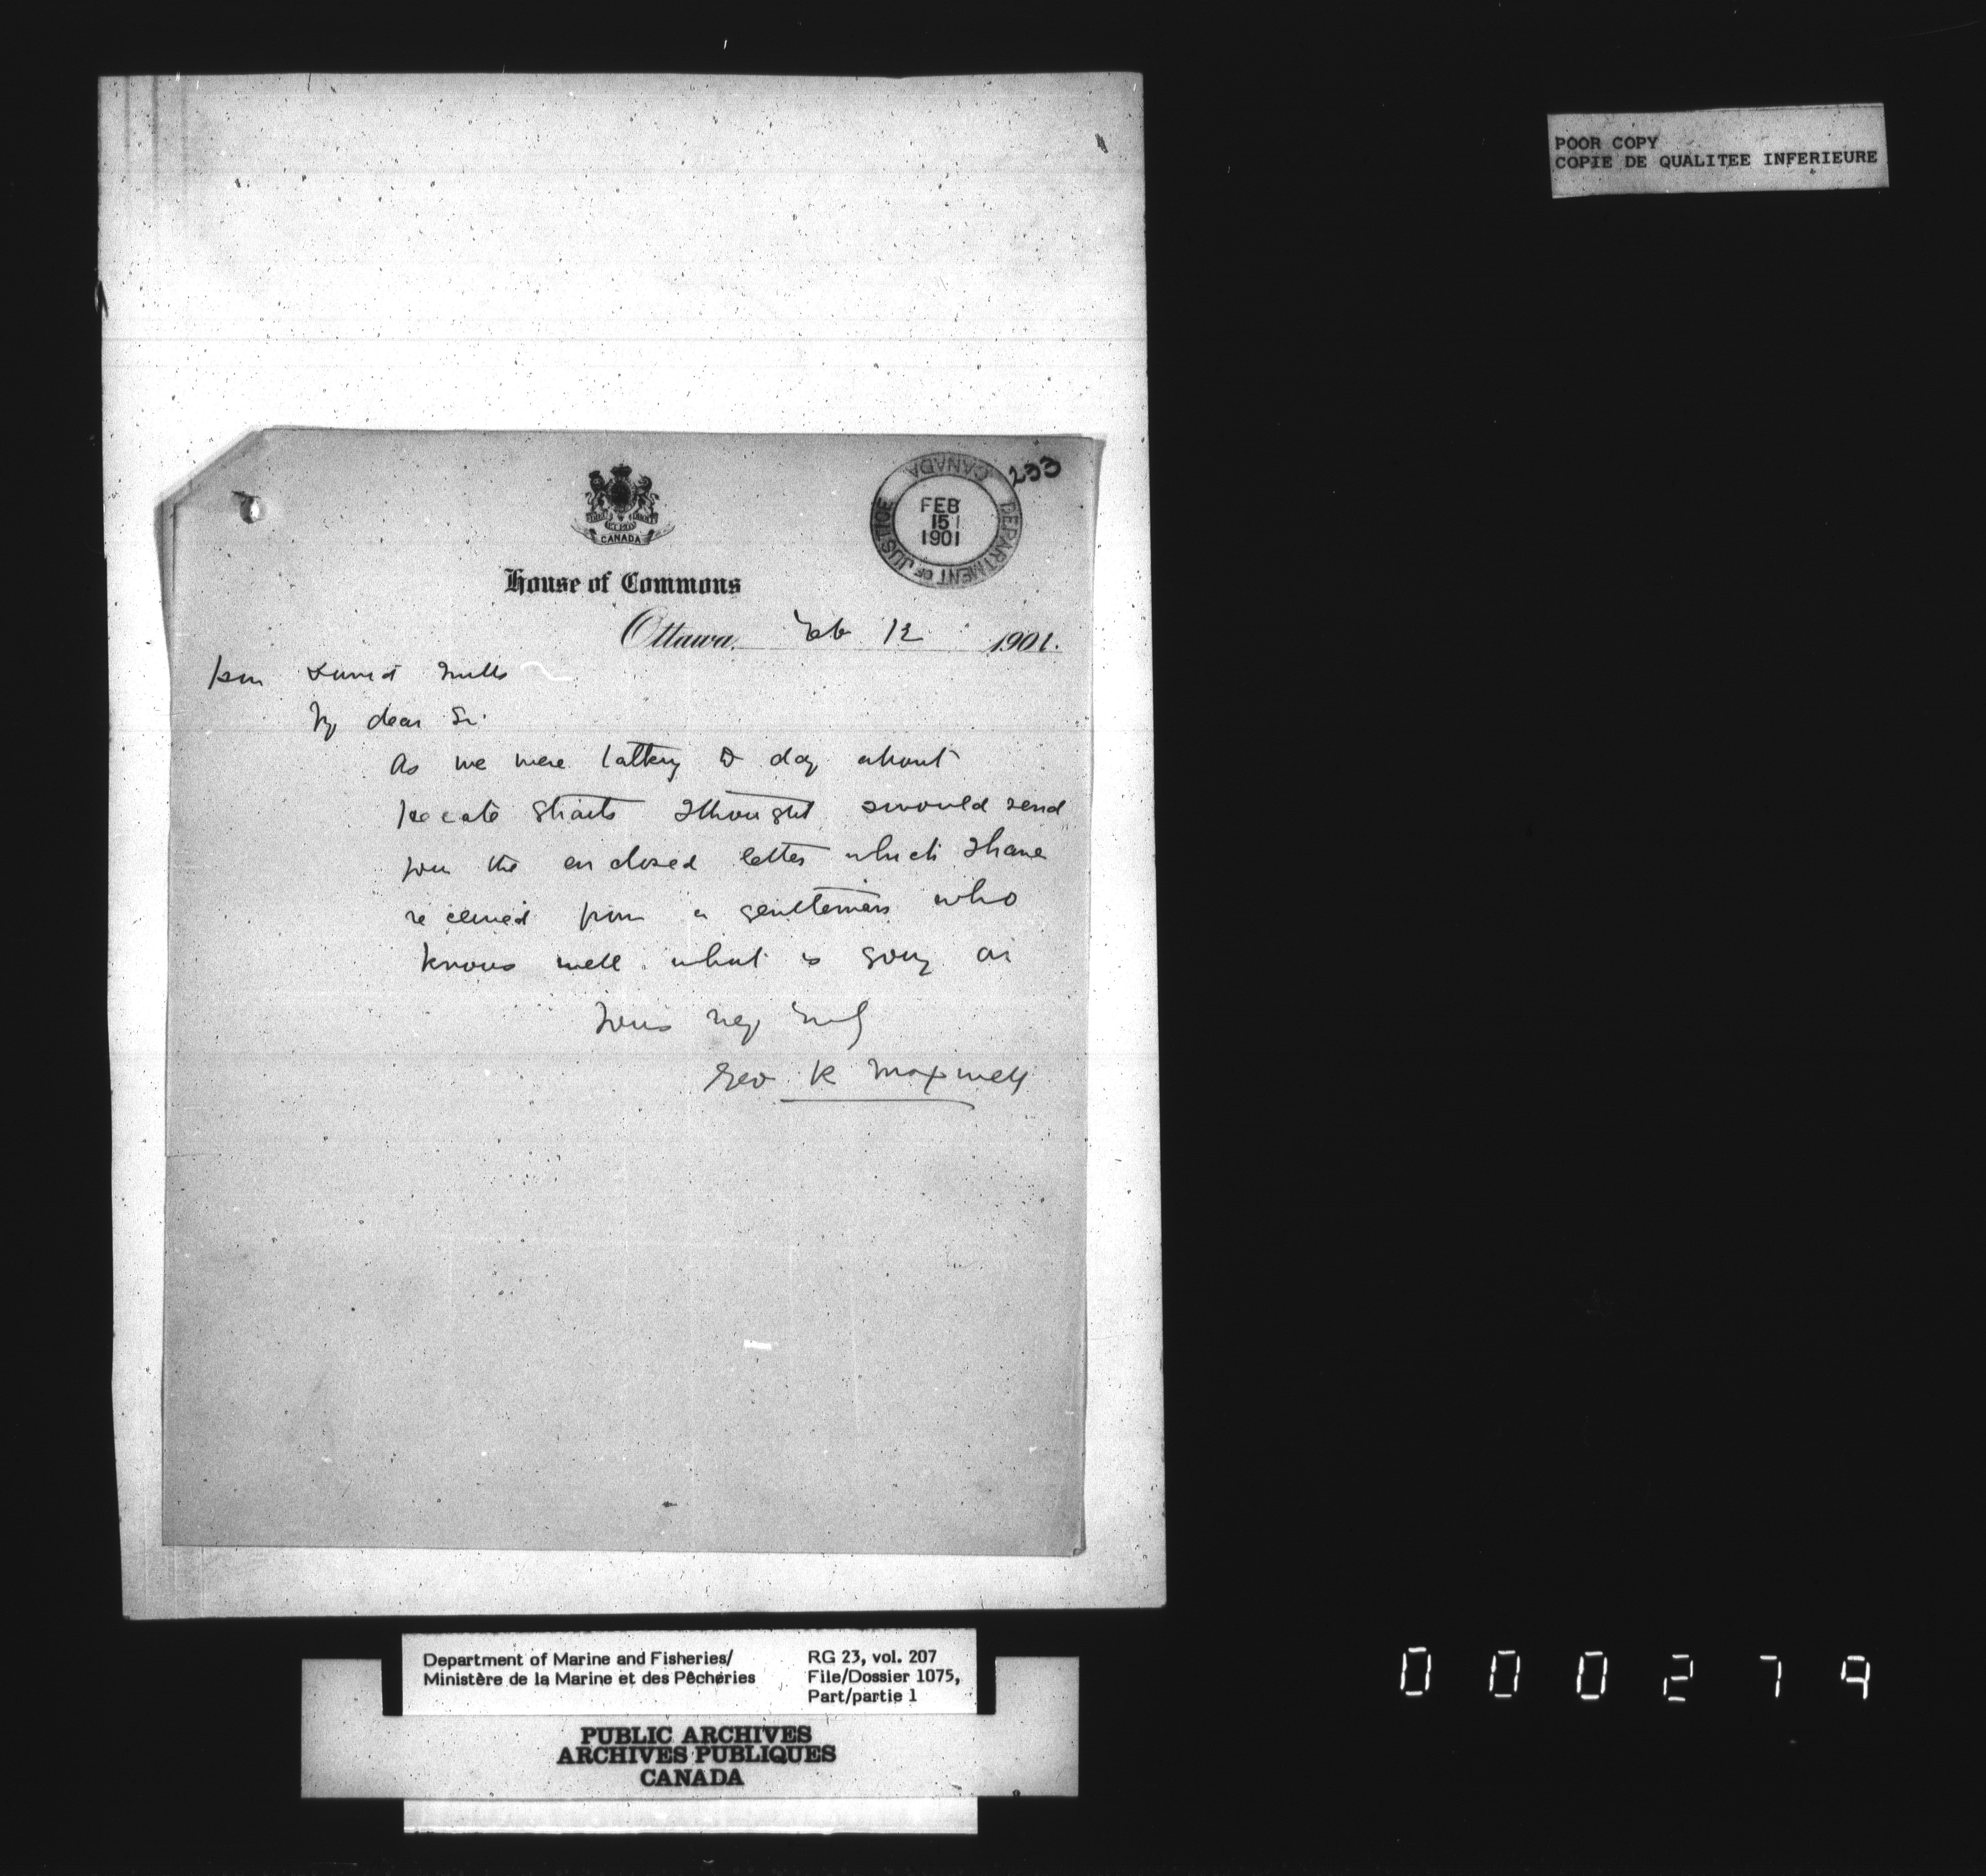 POOR COPY
COPIE DE QUALITEE INFERIEURE
233
CANADA
DEPARTMENT OF JUSTICE
FEB
15
1901
CANADA
House of Commons
Ottawa, Feb 12 1901.
Hon David Mills
My dear Sir
As we were talking to day about
Hecate Straits I thought I would send
you the enclosed letter which I have
received from a gentleman who
knows well what is going on
Yours very truly
Geo R Maxwell
Department of Marine and Fisheries/
Ministère de la Marine et des Pêcheries
RG 23, vol. 207
File/Dossier 1075,
Part/partie 1
PUBLIC ARCHIVES
ARCHIVES PUBLIQUES
CANADA
000279